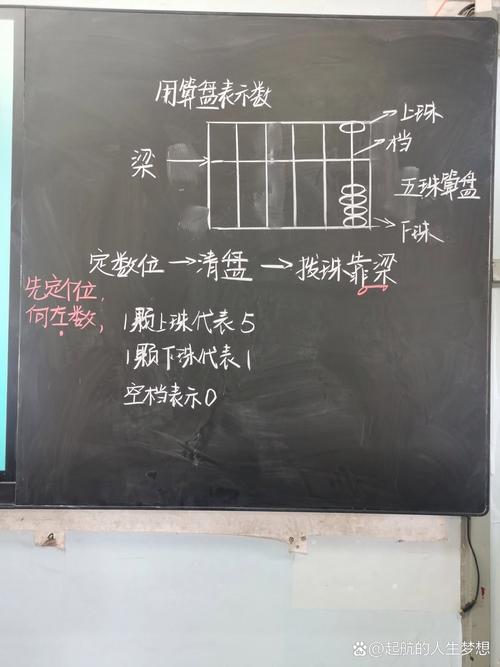 用算盘表示数
上珠
档
梁
五珠算盘
下珠
定数位→清盘→拨珠靠梁
先定个位,
向左数,
1颗上珠代表5
1颗下珠代表1
空档表示0
@起航的人生梦想